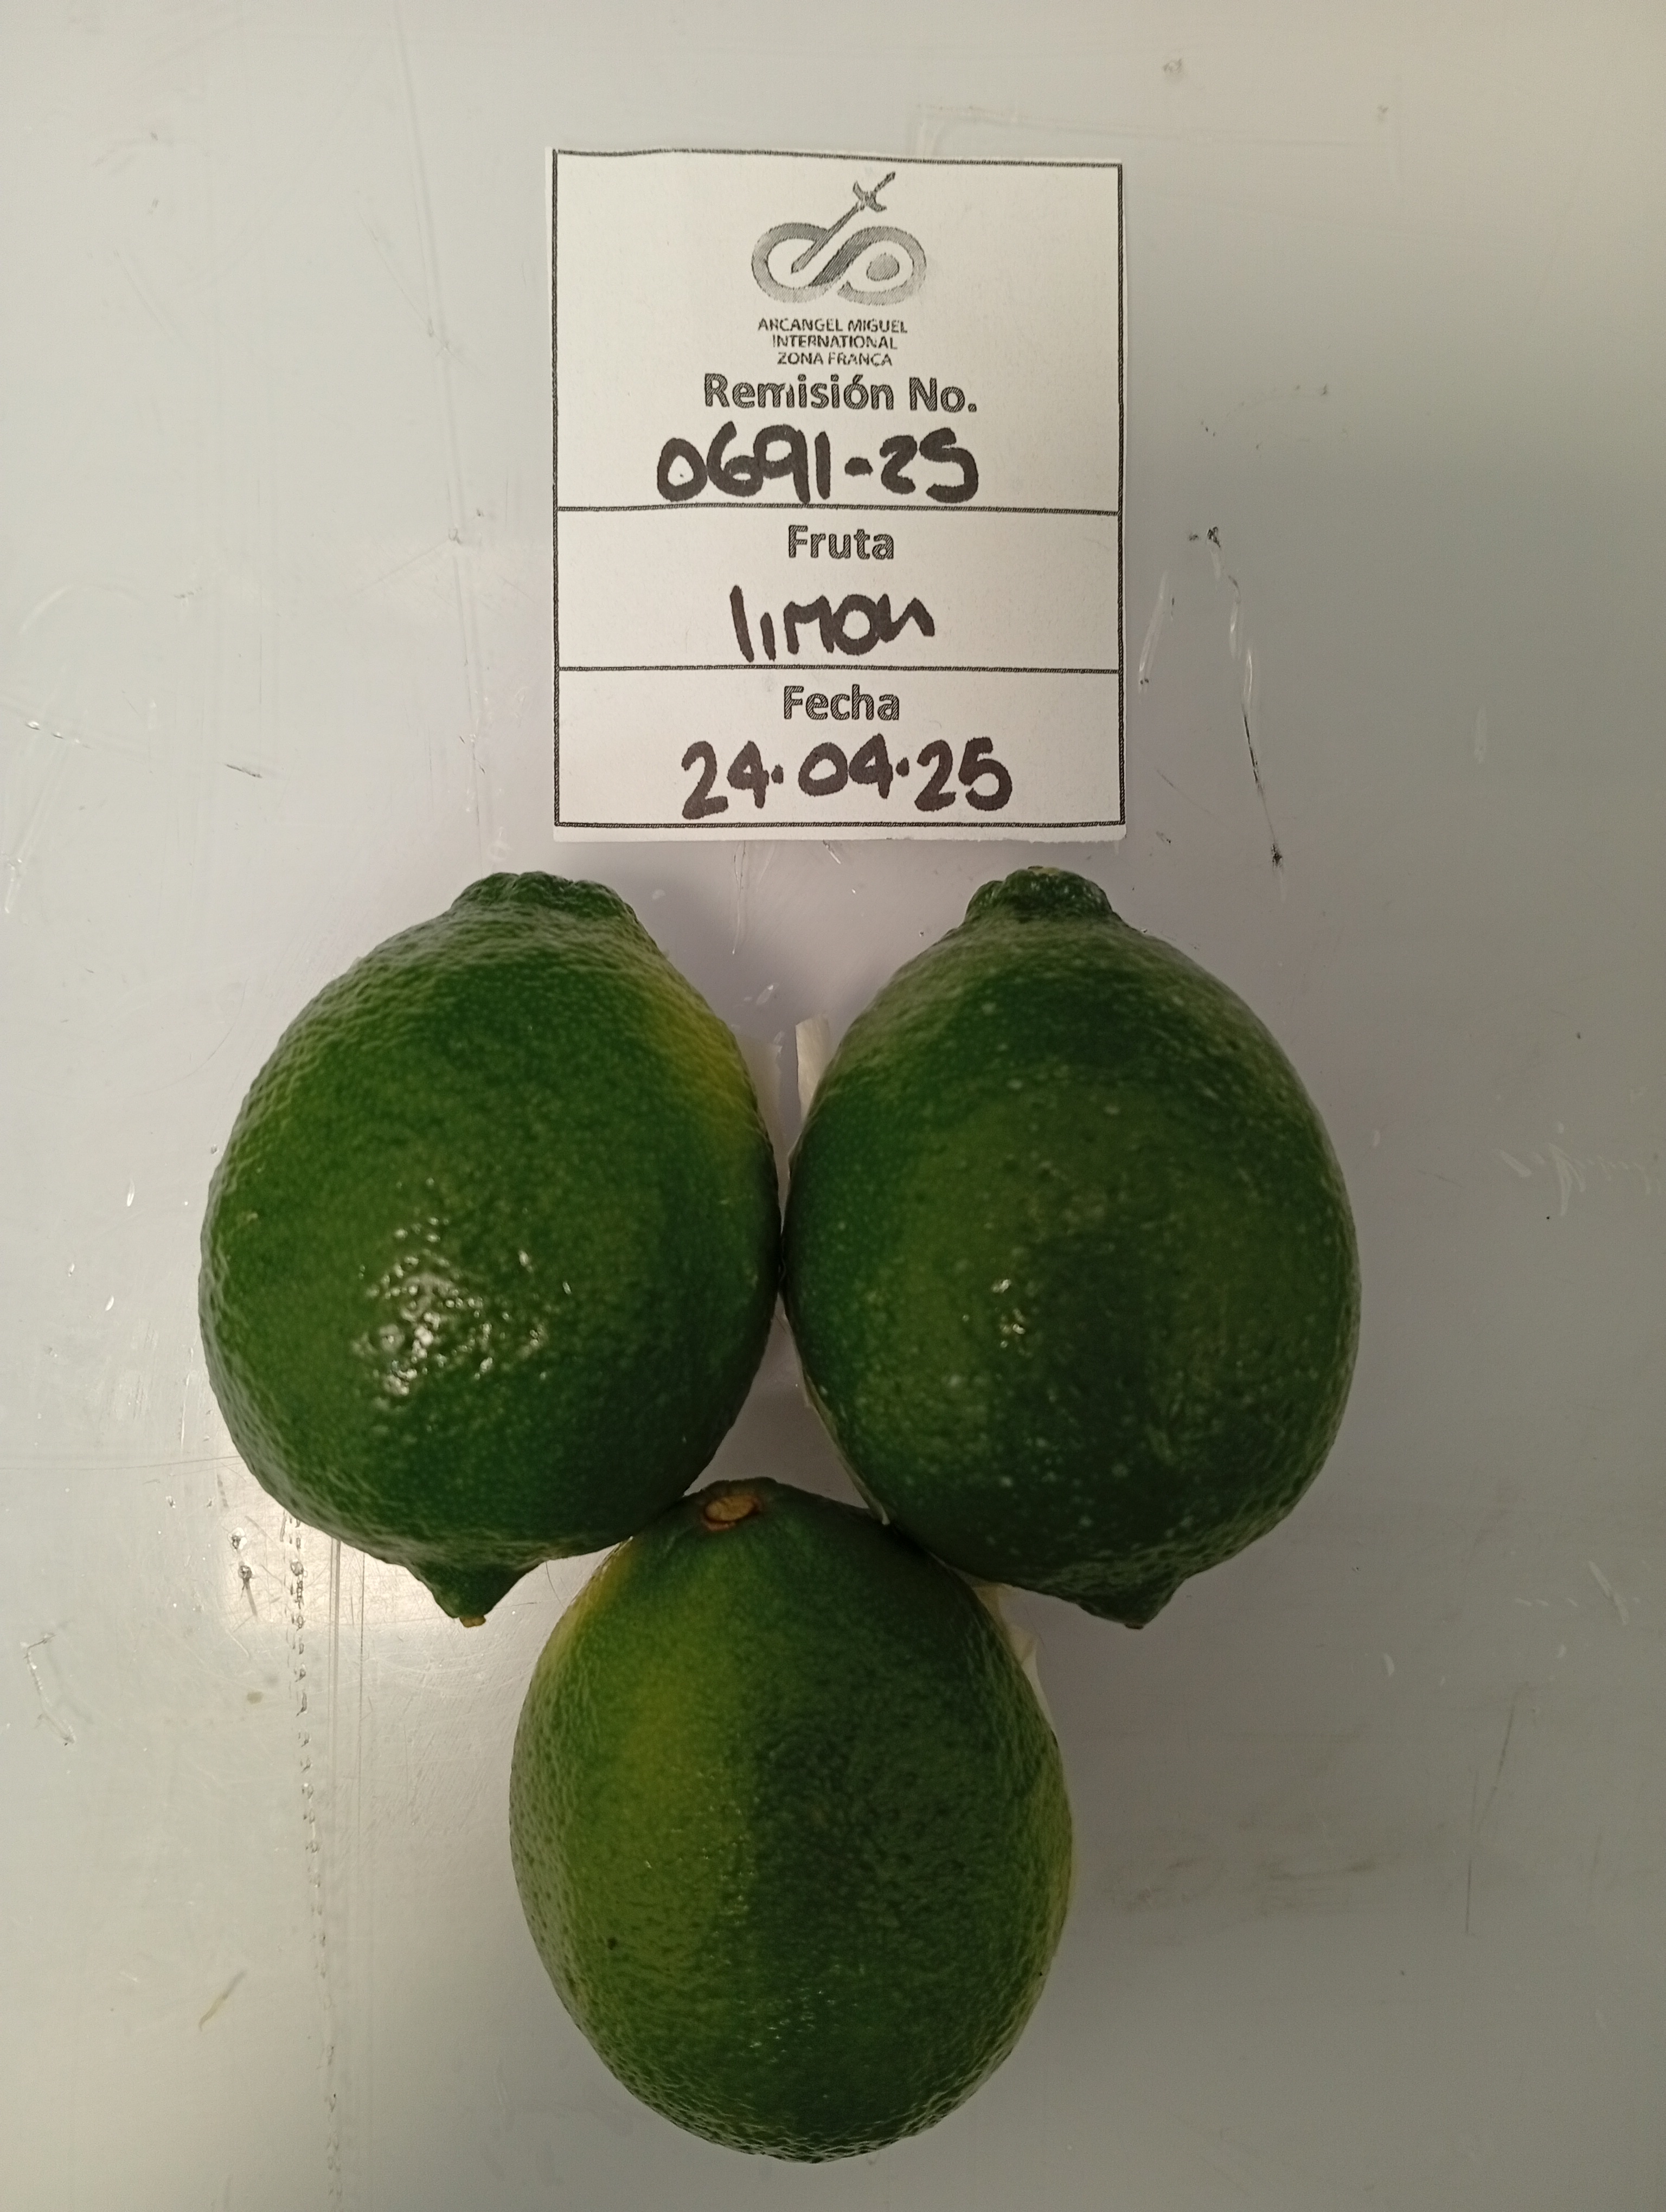 ARCANGEL MIGUEL
INTERNATIONAL
ZONA FRANCA
Remisión No.
0691-25
Fruta
limon
Fecha
24.04.25